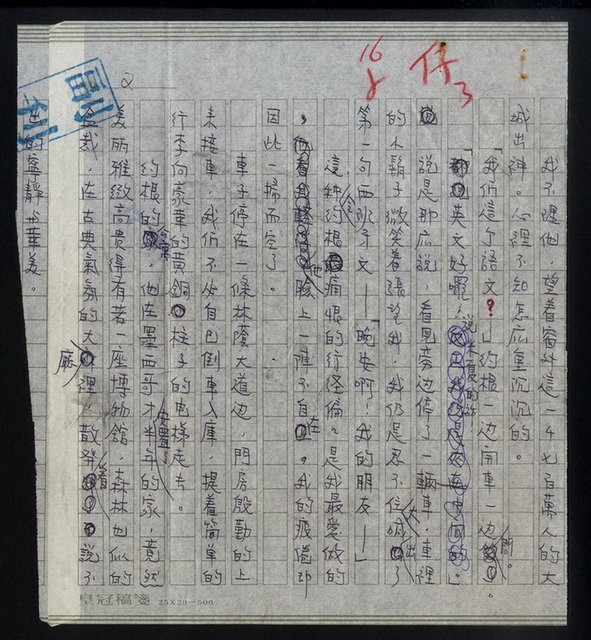 16
仔
3
2
副刊
我不理他,望着窗外這一千七百萬人的大
城出神。心裡不知怎麼重沉沉的。
「我們這個語文?」約根一邊開車一邊問。
「英文好囉!
說是那麼說,看見旁邊停了一輛車,車裡
的小鬍子微笑着張望我,我仍是忍不住大喊出了
第一句西班牙文——「晚安啊!我的朋友——」
這種令約根痛恨的行徑偏偏是我最愛做的
,他臉上一陣不自在,我的疲倦卻
因此一掃而空了。
車子停在一條林蔭大道邊,門房殷勤的上
來接車,我們不必自己倒車入庫,提着簡單的
行李向豪華的黃銅柱子的电梯走去。
約根的公寓,他在墨西哥才安置了半年的家,竟然
美丽雅緻高貴得有若一座博物館,森林也似的
盆栽,在古典氣氛的大廳裡散發着說不
出的寧靜與華美。
皇冠稿箋 25X20=500